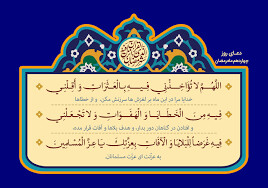 دعای روز
چهاردهم ماه رمضان
اللَّهُمَّ لَا تُؤَاخِذْنِي فِيهِ بِالْعَثَرَاتِ وَ أَقِلْنِي
خدایا مرا در این ماه بر لغزش ها سرزنش مکن، و از خطاها
فِيهِ مِنَ الْخَطَايَا وَ الْهَفَوَاتِ وَ لَا تَجْعَلْنِي
و افتادن در گناهان دور بدار، و هدف بلاها و آفات قرار مده،
فِيهِ غَرَضاً لِلْبَلَايَا وَ الْآفَاتِ بِعِزَّتِكَ يَا عِزَّ الْمُسْلِمِينَ
به عزّتت ای عزت مسلمانان.